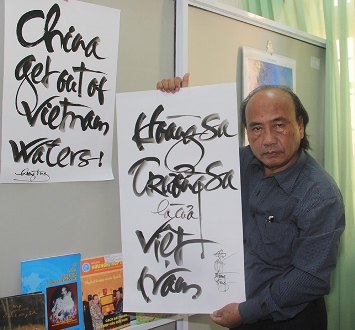 China
get out of
Vietnam
waters!
Hoàng Sa
Trường Sa
là của
Việt
Nam